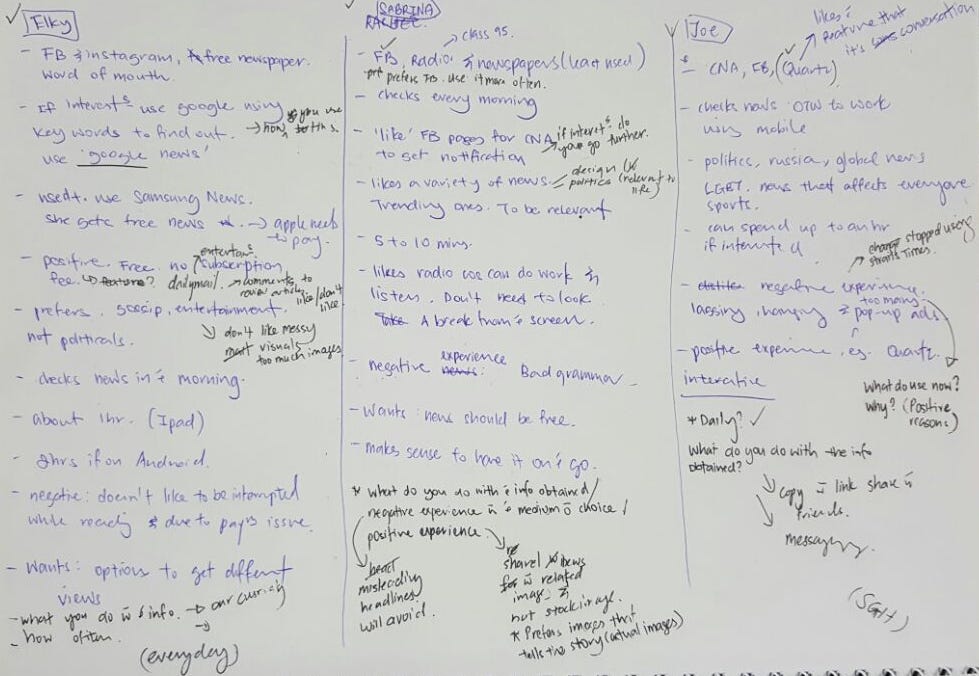 Elky
- FB & instagram, free newspaper.
word of mouth.
- If interest use google using
key words to find out. → how you use this.
use 'google news'
- used to use Samsung News.
She gets free news → apple needs
to pay.
- positive. Free. no subscription
fee. ↳ features? dailymail. → comments to
review article
like/don't like
- prefers gossip, entertainment.
not politicals.
↳ don't like messy
visuals
too much images
- checks news in é morning.
- about 1hr. (Ipad)
- 2hrs if on Android.
- negative: doesn't like to be interrupted
while reading & due to page issue.
- Wants: options to get different
views
- what you do w é info. →
- how often.
(everyday)
SABRINA
→ class 95.
- FB, Radio & newspapers (least used)
prefers FB. use it more often.
- checks every morning
- 'like' FB pages for CNA
to get notification
→ if interest do
you go further.
- likes a variety of news.
design
politics (relevant to
life)
Trending ones. To be relevant
- 5 to 10 mins.
- likes radio cos can do work &
listen. Don't need to look
A break from é screen.
- negative experience: Bad grammar
- Wants: news should be free.
- makes sense to have it on é go.
* what do you do with é info obtained /
negative experience w é medium o choice /
positive experience.
misleading
headlines
will avoid.
shared news
w related
image &
not stock image.
* Prefers images that
tells the story (actual images)
Joe
likes é
feature that
it's conversation
- CNA, FB, (Quartz)
- checks news OTW to work
using mobile
- politics, russia, global news
LGBT. news that affects everyone
sports.
- can spend up to an hr
if interested
stopped using
straits Times.
- negative experience.
lagging, hanging & too many pop-up ads
- positive experience. eg. Quartz.
interative
What do use now?
why? (Positive
reasons)
* Daily? ✓
What do you do with the info
obtained?
↳ copy w link share w
friends.
↳ messaging.